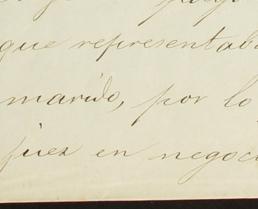 que representaba
marido, por lo
juez en negoci